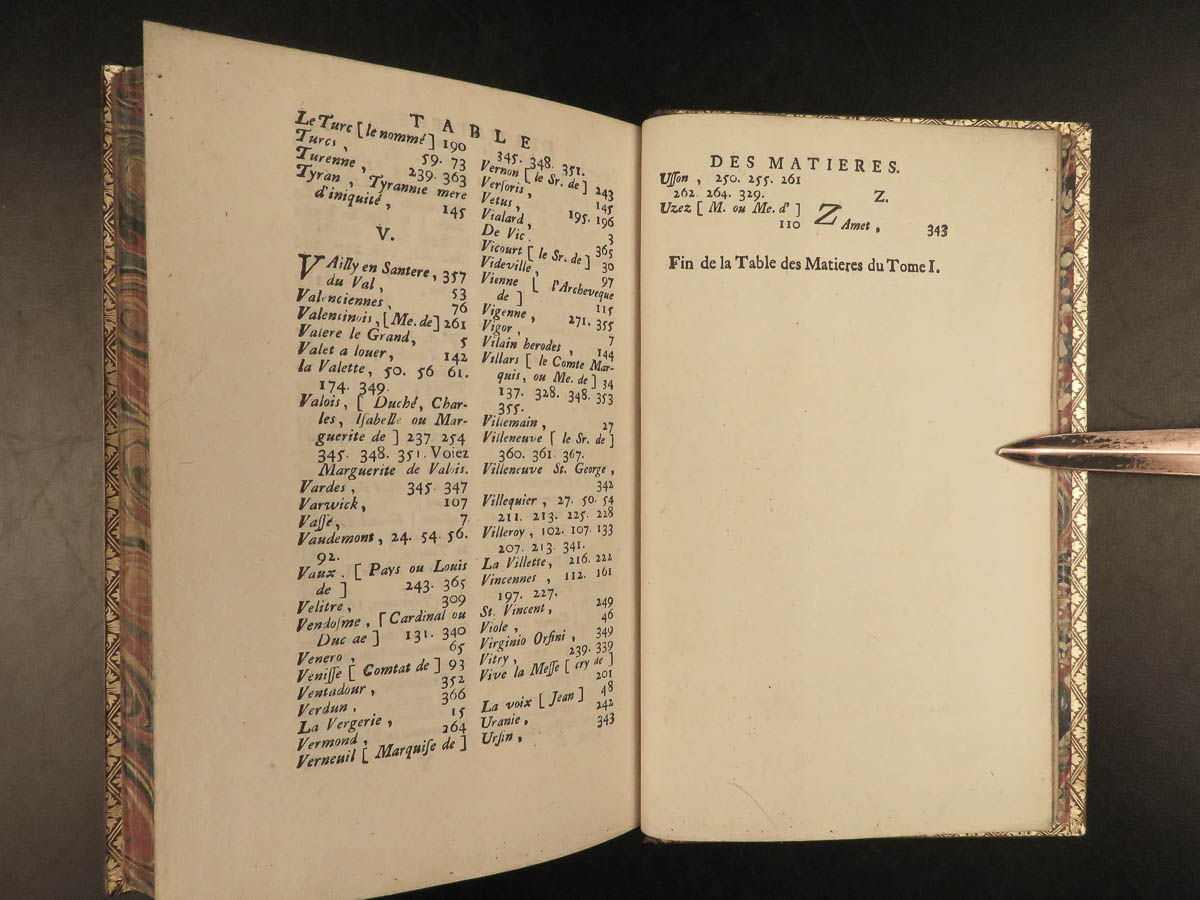 TABLE
Le Turc [ le nommé ] 190
Turcs, 59. 73
Turenne, 239. 363
Tyran, Tyrannie mere
d'iniquité, 145
V.
VAilly en Santere, 357
du Val, 53
Valenciennes, 76
Valentinois, [ Me. de ] 261
Valere le Grand, 5
Valet a louer, 142
la Valette, 50. 56 61.
174. 349.
Valois, [ Duché, Char-
les, Iſabelle ou Mar-
guerite de ] 237. 254
345. 348. 351. Voiez
Marguerite de Valois.
Vardes, 345. 347
Varwick, 107
Vaſſé, 7
Vaudemont, 24. 54. 56.
92.
Vaux, [ Pays ou Louis
de ] 243. 365
Velitre, 309
Vendoſme, [ Cardinal ou
Duc de ] 131. 340
Venero, 65
Veniſſe [ Comtat de ] 93
Ventadour, 352
Verdun, 366
La Vergerie, 15
Vermond, 264
Verneuil [ Marquiſe de ]
345. 348. 351.
Vernon [ le Sr. de ] 243
Verſoris, 145
Vetus, 195. 196
Vialard, 3
De Vic, 365
Vicourt [ le Sr. de ] 30
Videville, 97
Vienne [ l'Archeveque
de ] 115
Vigenne, 271. 355
Vigor, 7
Vilain herodes, 144
Villars [ le Comte Mar-
quis, ou Me. de ] 34
137. 328. 348. 353
355.
Villemain, 27
Villeneuve [ le Sr. de ]
360. 361. 367.
Villeneuve St. George,
342
Villequier, 27. 50. 54
211. 213. 225. 228
Villeroy, 102. 107. 133
207. 213. 341.
La Villette, 216. 222
Vincennes, 112. 161
197. 227.
St. Vincent, 249
Viole, 46
Virginio Orſini, 349
Vitry, 239. 339
Vive la Meſſe [ cry de ]
201
La voix [ Jean ] 48
Uranie, 242
Urſin, 343
DES MATIERES.
Uſſon, 250. 255. 261
262. 264. 329.
Uzez [ M. ou Me. d' ]
110
Z.
ZAmet, 343
Fin de la Table des Matieres du Tome I.